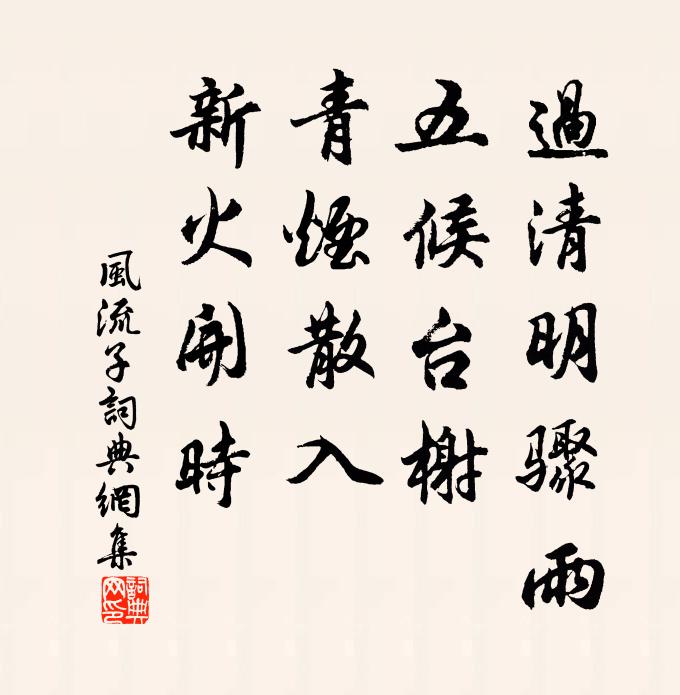 過清明驟雨
五候台榭
青煙散入
新火開時
風流子詞典網集
詞典網印